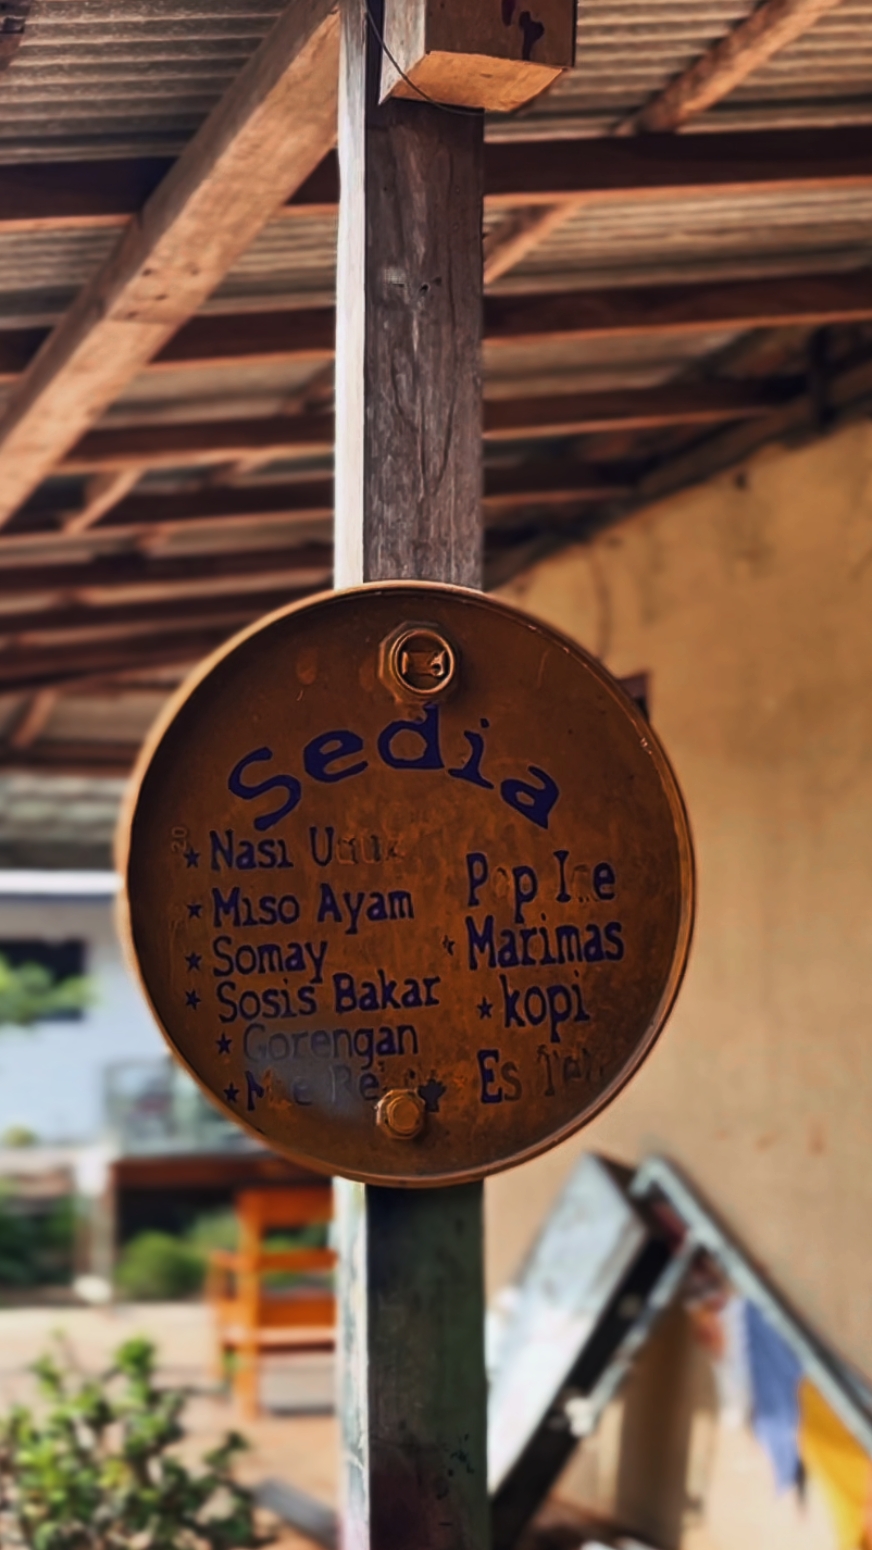 Sedia
Nasi
Miso Ayam
Somay
Sosis Bakar
Gorengan
Pop Ice
Marimas
kopi
Es
20